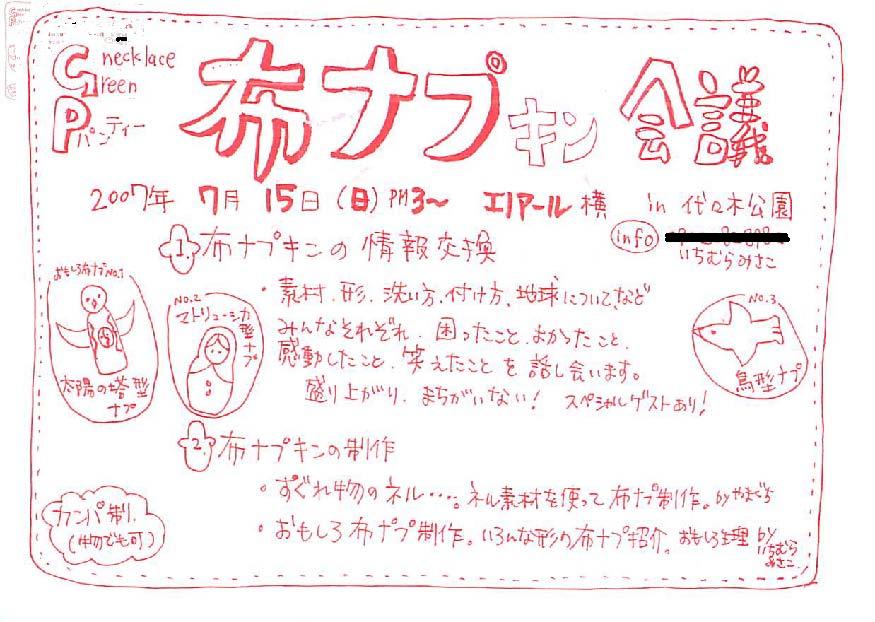 Green necklace
Pパンティー
布ナプキン会議
2007年 7月 15日(日) PM3〜 エノアール横 in 代々木公園
info
いちむらみさこ
1. 布ナプキンの情報交換
・素材、形、洗い方、付け方、地球について、など
みんなそれぞれ、困ったこと、よかったこと、
感動したこと、笑えたことを話し会います。
盛り上がり、まちがいない! スペシャルゲストあり!
おもしろ布ナプNo.1
太陽の塔型
ナプ
No.2
マトリューシカ
型ナプ
No.3
鳥型ナプ
2. 布ナプキンの制作
・すぐれ物のネル…。ネル素材を使って布ナプ制作。byやまぐち
・おもしろ布ナプ制作。いろんな形の布ナプ紹介。おもしろ生理 by
いちむら
みさこ
カンパ制、
(物でも可)